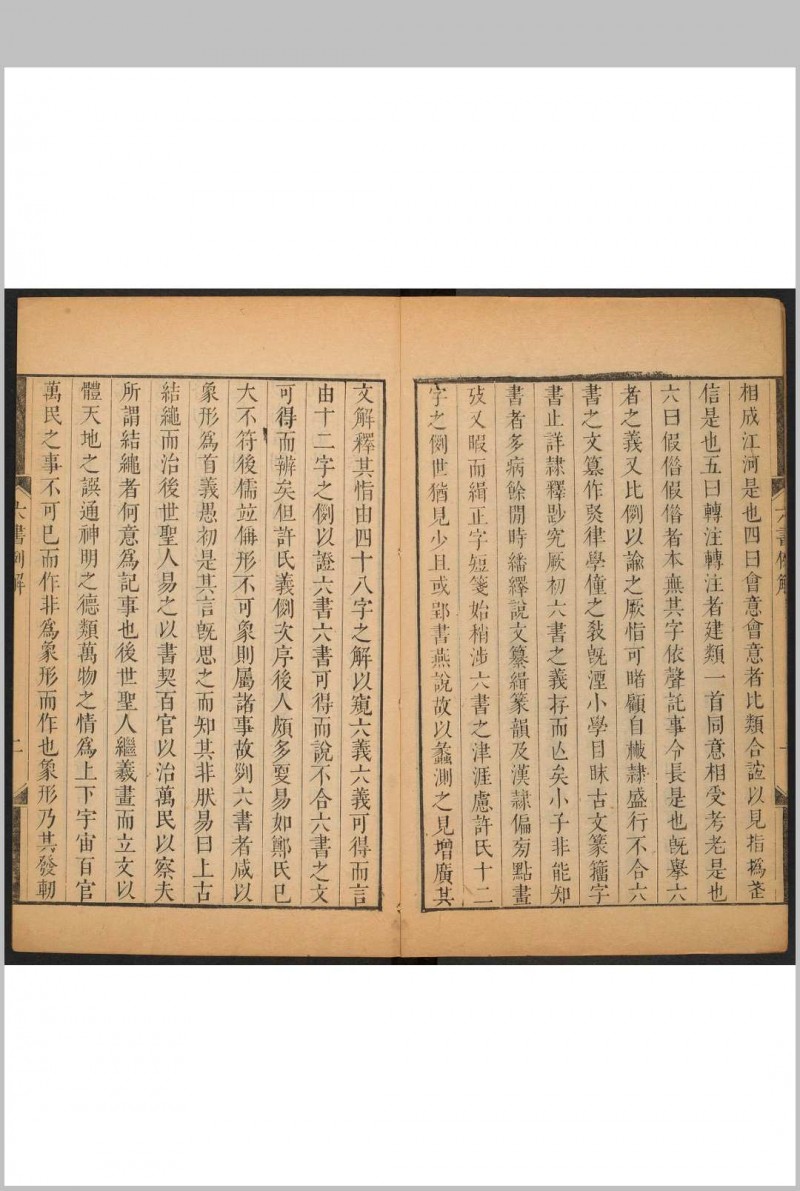 相成江河是也四曰會意會意者比類合誼以見指撝武
信是也五曰轉注轉注者建類一首同意相受考老是也
六曰假借假借者本無其字依聲託事令長是也旣擧六
者之義又比例以諭之厥恉可睹顧自檄隷盛行不合六
書之文纂作炗律學僮之敎旣湮小學目昧古文篆籒字
書止詳隷釋尟究厥初六書之義存而亾矣小子非能知
書者多病餘閒時繙繹說文纂緝篆韻及漢隷偏旁點畫
攷又暇而緝正字短箋始稍涉六書之津涯慮許氏十二
字之例世猶見少且或郢書燕說故以蠡測之見增廣其
文解釋其恉由四十八字之解以窺六義六義可得而言
由十二字之例以證六書六書可得而說不合六書之文
可得而辨矣但許氏義例次序後人頗多叓易如鄭氏已
大不符後儒竝侮形不可象則屬諸事故列六書者咸以
象形爲首義愚初是其言旣思之而知其非肰易曰上古
結繩而治後世聖人易之以書契百官以治萬民以察夫
所謂結繩者何意爲記事也後世聖人繼羲畫而立文以
體天地之譔通神明之德類萬物之情爲上下宇宙百官
萬民之事不可已而作非爲象形而作也象形乃其發軔
六書例解
一
六書例解
二